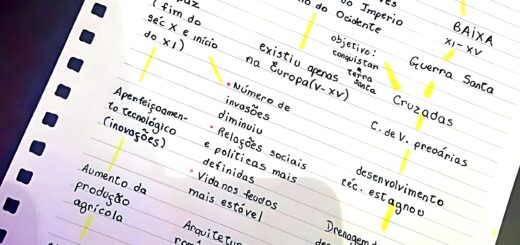 (fim do
séc X e início
do XI)
Aperfeiçoamen-
to tecnológico
(inovações)
Aumento da
produção
agrícola
do Ocidente
existiu apenas
na Europa (V-XV)
• Número de
invasões
diminuiu
• Relações sociais
e políticas mais
definidas
• Vida nos feudos
mais estável
Império
objetivo:
conquistar
a
terra
santa
BAIXA
XI-XV
Guerra Santa
Cruzadas
C. de V. precárias
desenvolvimento
téc. estagnou